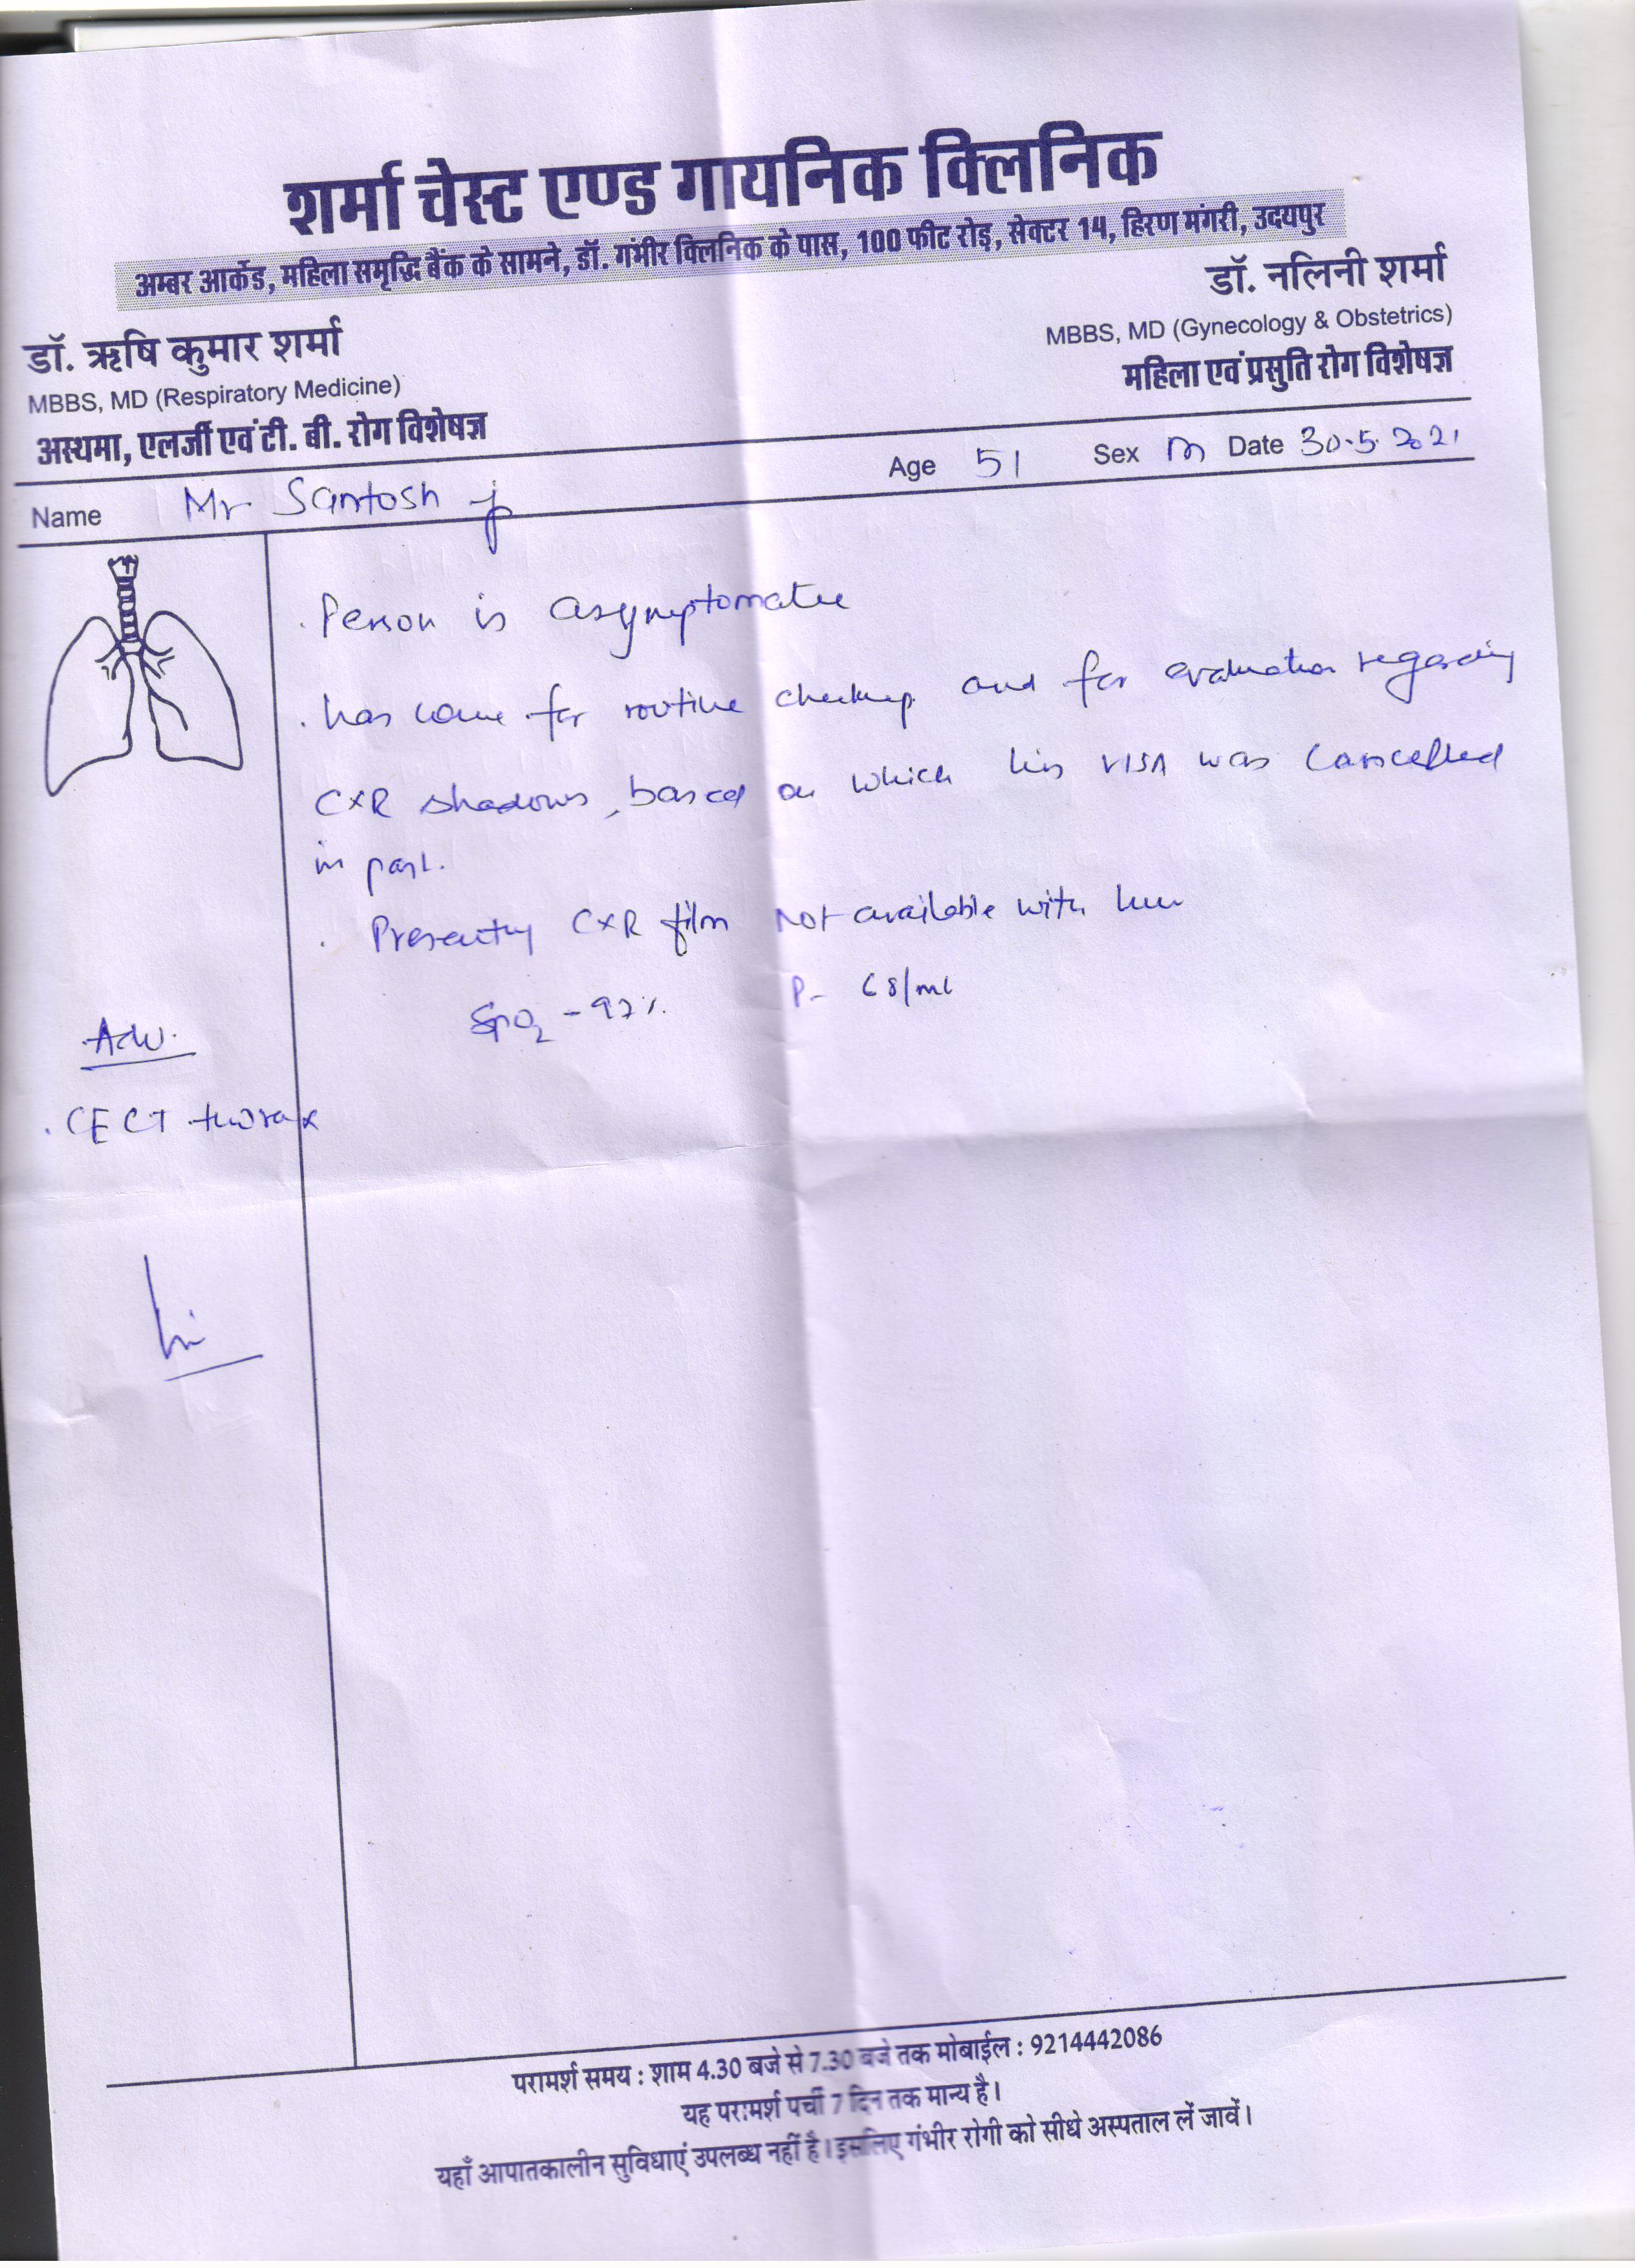 शर्मा चेस्ट एण्ड गायनिक क्लिनिक
अम्बर आर्केड, महिला समृद्धि बैंक के सामने, डॉ. गंभीर क्लिनिक के पास, 100 फीट रोड़, सेक्टर 14, हिरण मंगरी, उदयपुर
डॉ. ऋषि कुमार शर्मा
MBBS, MD (Respiratory Medicine)
अस्थमा, एलर्जी एवं टी. बी. रोग विशेषज्ञ
डॉ. नलिनी शर्मा
MBBS, MD (Gynecology & Obstetrics)
महिला एवं प्रसुति रोग विशेषज्ञ
Name Mr Santosh Age 51 Sex M Date 30.5.2021
. Person is asymptomatic
. has come for routine checkup and for evaluation regarding
CXR shadows, based on which his VISA was cancelled
in past.
. Presently CXR film Not available with him
SpO2 - 97%. P-
Adv.
. CECT thorax
परामर्श समय : शाम 4.30 बजे से 7.30 बजे तक मोबाईल : 9214442086
यह परामर्श पर्ची 7 दिन तक मान्य है।
यहाँ आपातकालीन सुविधाएं उपलब्ध नहीं है। इसलिए गंभीर रोगी को सीधे अस्पताल लें जावें।